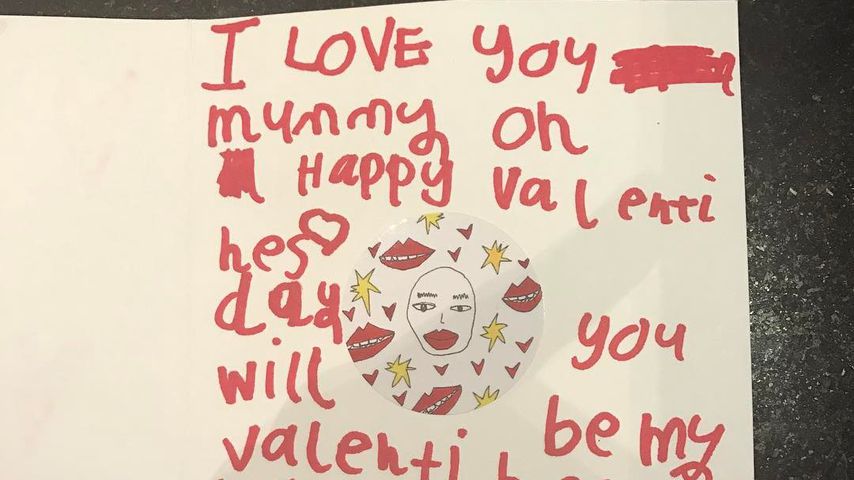 I LOVE yoy
mummy on
Happy valenti
nes
day
will you
be my
valenti